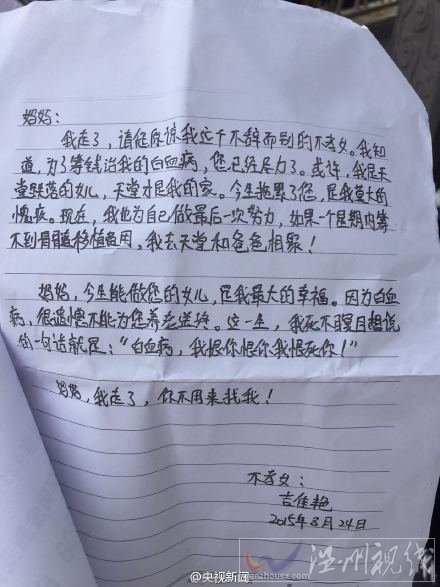 妈妈：
我走了，请您原谅我这个不辞而别的不孝女。我知
道，为了筹钱治我的白血病，您已经尽力了。或许，我是天
堂坠落的女儿，天堂才是我的家。今生拖累了您，是我莫大的
愧疚。现在，我也为自己做最后一次努力，如果一个星期内筹
不到骨髓移植费用，我去天堂和爸爸相聚！
妈妈，今生能做您的女儿，是我最大的幸福。因为白血
病，很遗憾不能为您养老送终。这一生，我死不瞑目想说
的一句话就是：“白血病，我恨你恨你我恨死你！”
妈妈，我走了，你不用来找我！
不孝女：
吉佳艳
2015年8月24日
@央视新闻
温州视线
wenzhousx.com